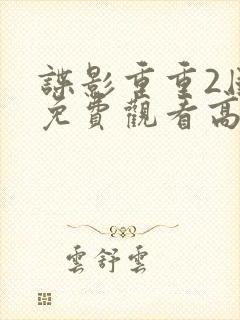 諜影重重2
免費觀看高
雲舒雲